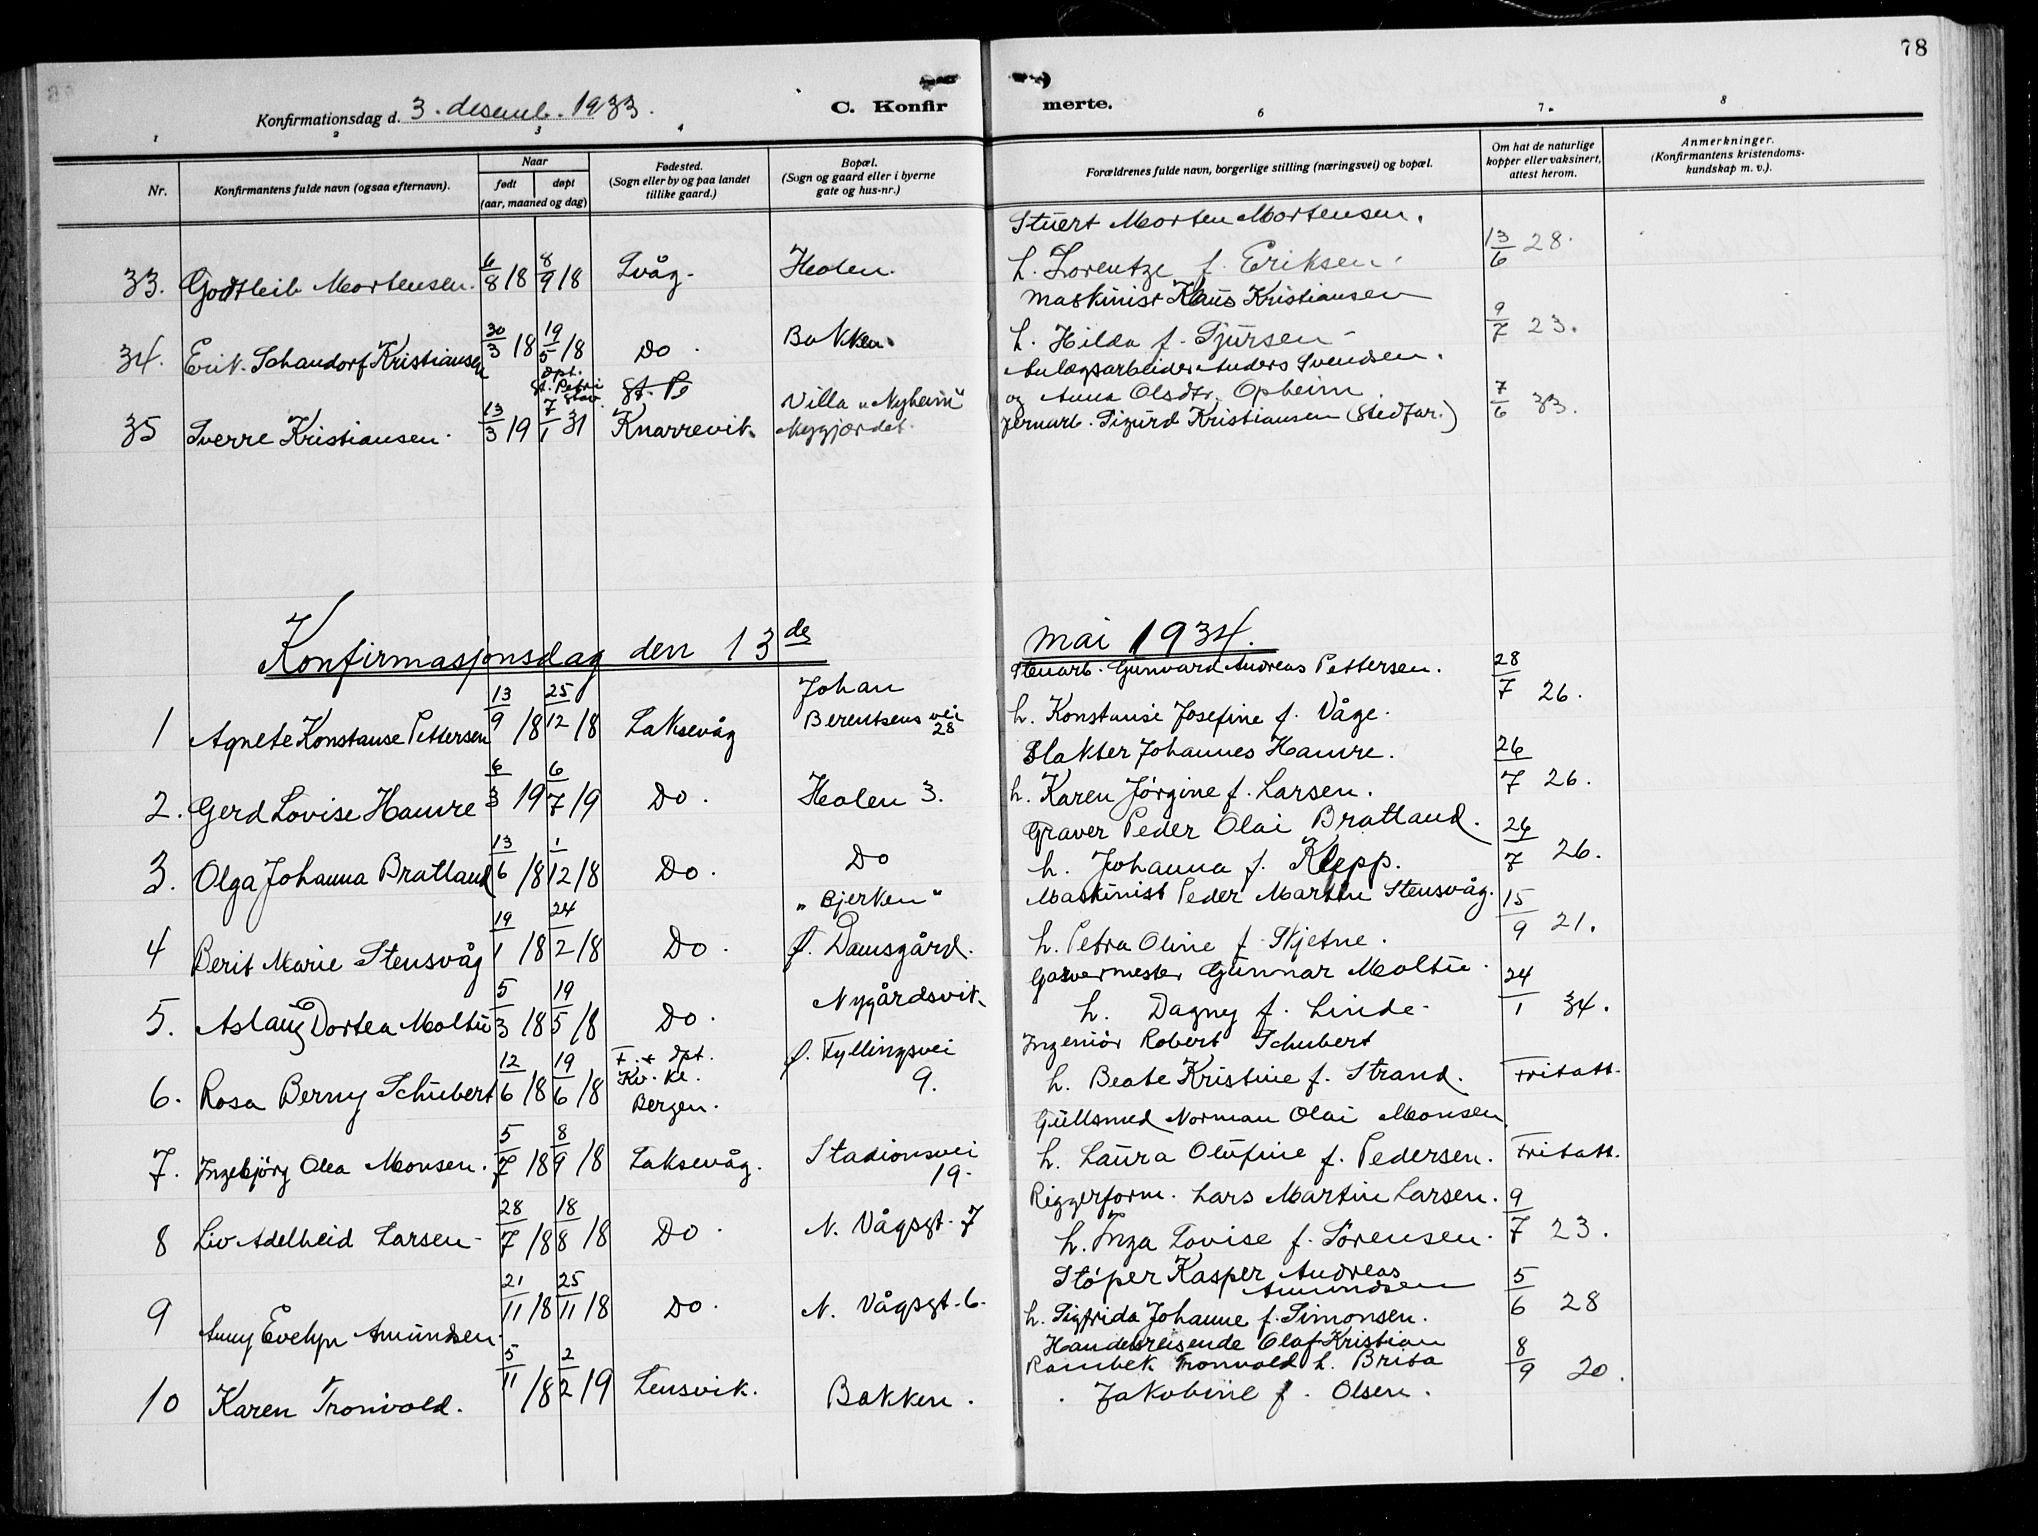 78
Konfirmationsdag d. 3. desemb. 1933.
C. Konfirmerte.
1 2 3 4 6 7. 8
Nr. Konfirmantens fulde navn (ogsaa efternavn). Naar født døpt (aar, maaned og dag) Fødested. (Sogn eller by og paa landet tillike gaard.) Bopæl. (Sogn og gaard eller i byerne gate og hus-nr.) Forældrenes fulde navn, borgerlige stilling (næringsvei) og bopæl. Om hat de naturlige kopper eller vaksinert, attest herom. Anmerkninger. (Konfirmantens kristendoms-kundskap m. v.).
Stuert Morten Mortensen.
33. Godtleib Mortensen. 6/8 18 8/9 18 Lvåg. Holen. h. Lorentze f. Eriksen. 13/6 28.
Maskinist Klaus Kristiansen
34. Erik Schandorf Kristiansen 30/3 18 19/5 18 Do. Bakken. h. Hilda f. Sjursen 9/7 23.
Anlægsarbeider Anders Svendsen.
Dpt. St. Petri Stav. St. Pe Villa "Nyheim" og Anna Olsdtr. Opheim
35 Sverre Kristiansen. 13/3 19 7/1 31 Knarrevik Nygjordet. Jernarb. Sigurd Kristiansen (Stedfar.) 7/6 33.
Konfirmasjonsdag den 13de mai 1934.
Stenarb. Gunvard Andreas Pettersen.
1 Agnete Konstanse Pettersen 13/9 18 25/12 18 Laksevåg Johan Berentsens vei 28 h. Konstansi Josefine f. Våge. 28/7 26.
Slakter Johannes Hamre.
2. Gerd Lovise Hamre 6/3 19 6/7 19 Do. Holen 3. h. Karen Jörgine f. Larsen. 26/7 26.
Graver Peder Olai Bratland.
3. Olga Johanna Bratland 13/6 18 1/12 18 Do. Do h. Johanna f. Klepp. 26/7 26.
Maskinist Peder Martin Stensvåg.
4 Berit Marie Stensvåg 19/1 18 24/2 18 Do. "Bjerken" f. Damsgård. h. Petra Oline f. Skjetne. 15/9 21.
Garvermester Gunnar Moltu.
5. Aslaug Dortea Moltu 5/3 18 19/5 18 Do. Nygårdsvik h. Dagny f. Linde. 24/1 34.
Ingeniör Robert Schubert
6. Rosa Berny Schubert 12/6 18 19/6 18 F. + dpt. Kv. Kl. Bergen. f. Fyllingsvei 9. h. Beate Kristine f. Strand. Fritatt.
Gullsmed Norman Olai Monsen
7. Ingebjörg Olea Monsen. 5/7 18 8/9 18 Laksevåg. Stadionsvei 19. h. Laura Olufine f. Pedersen. Fritatt.
Riggerform. Lars Martin Larsen.
8 Liv Adelheid Larsen 28/7 18 18/8 18 Do. N. Vågsgt. 7 h. Inga Lovise f. Sörensen. 9/7 23.
Stöper Kasper Andreas Amundsen
9 Anny Evelyn Amundsen. 21/11 18 25/11 18 Do. N. Vågsgt. 6. h. Sigfrida Johanne f. Simonsen. 5/6 28
Handelsreisende Olaf Kristian
Rambek Tronvold h. Brita
10 Karen Tronvold. 5/11 18 2/2 19 Lensvik. Bakken. Jakobine f. Olsen. 8/9 20.